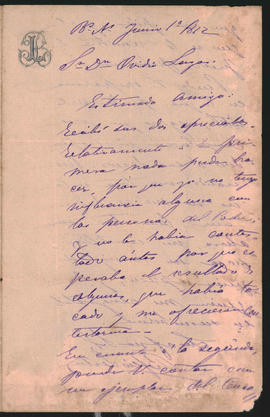 Bs As Junio 1º 1872
Sr Dn Ovidio Lagos
Estimado amigo:
Recibí sus dos apreciables
Relativamente á pri-
mera nada puedo ha-
cer, por que yo no tengo
influencia alguna con
las personas del Poder.
Y no le había contes-
tado ántes por que es-
peraba el resultado
algunos, que había to-
cado y me ofrecieron con-
testarme.
En cuanto á la segunda,
puede Vd contar con
un ejemplar del